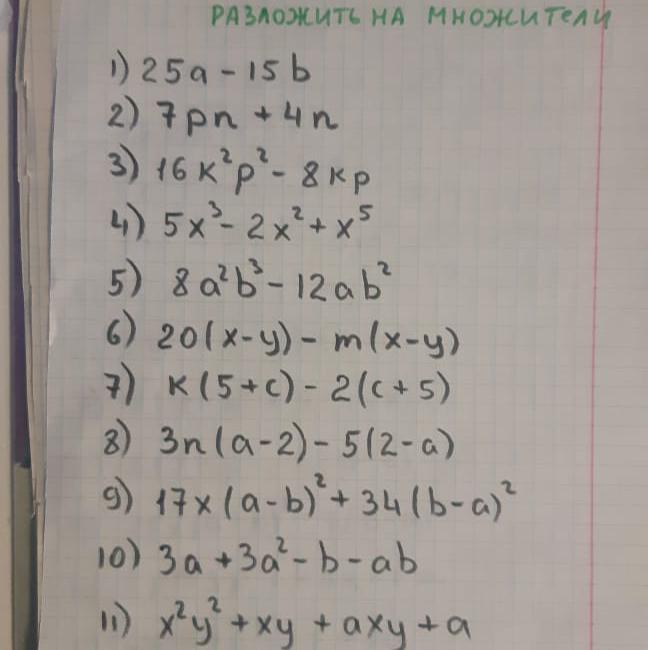 РАЗЛОЖИТЬ НА МНОЖИТЕЛИ
1) 25a - 15b
2) 7pn + 4n
3) 16k²p² - 8kp
4) 5x³ - 2x² + x⁵
5) 8a²b³ - 12ab²
6) 20(x-y) - m(x-y)
7) k(5+c) - 2(c+5)
8) 3n(a-2) - 5(2-a)
9) 17x(a-b)² + 34(b-a)²
10) 3a + 3a² - b - ab
11) x²y² + xy + axy + a